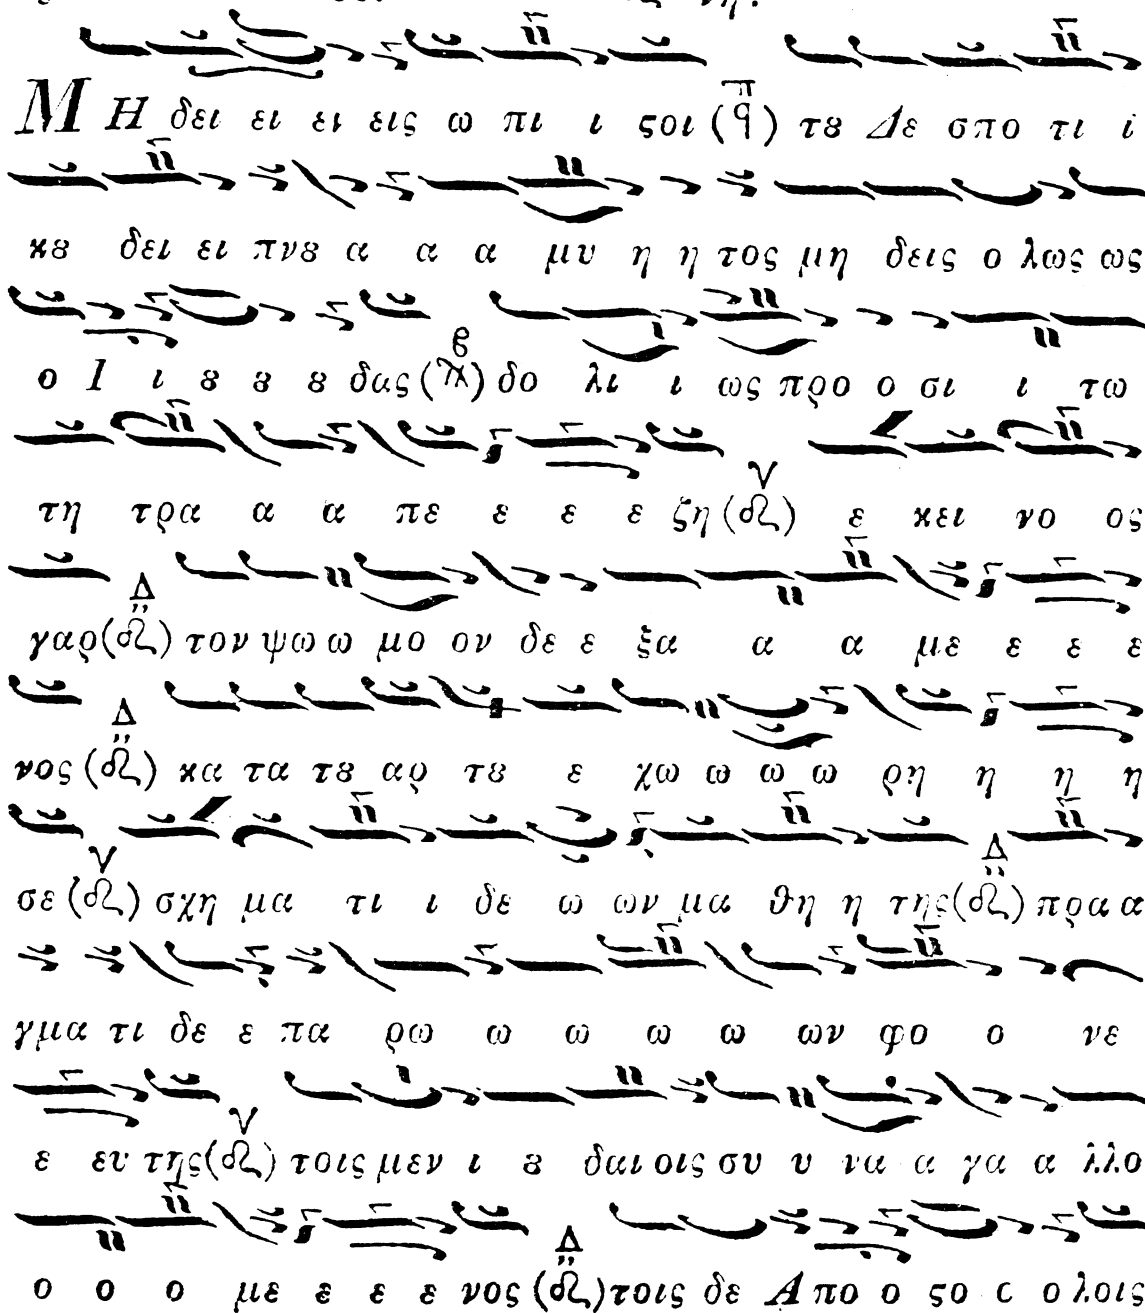 νη.
Μ Η δει ει ει εις ω πι ι ϛοι (π ϥ) τȣ Δε σπο τι ι
κȣ δει ει πνȣ α α α μυ η η τος μη δεις ο λως ως
ο Ι ι ȣ ȣ ȣ δας () δο λι ι ως προ ο σι ι τω
τη τρα α α πε ε ε ε ζη (ν) ε κει νο ος
γαρ (Δ) τον ψω ω μο ον δε ε ξα α α με ε ε ε
νος (Δ) κα τα τȣ αρ τȣ ε χω ω ω ω ρη η η η
σε (ν) σχη μα τι ι δε ω ων μα θη η της (Δ) πρα α
γμα τι δε ε πα ρω ω ω ω ω ων φο ο νε
ε ευ της (ν) τοις μεν ι ȣ δαι οις συ υ να α γα α λλο
ο ο ο με ε ε ε νος (Δ) τοις δε Α πο ο ϛο ο ο λοις